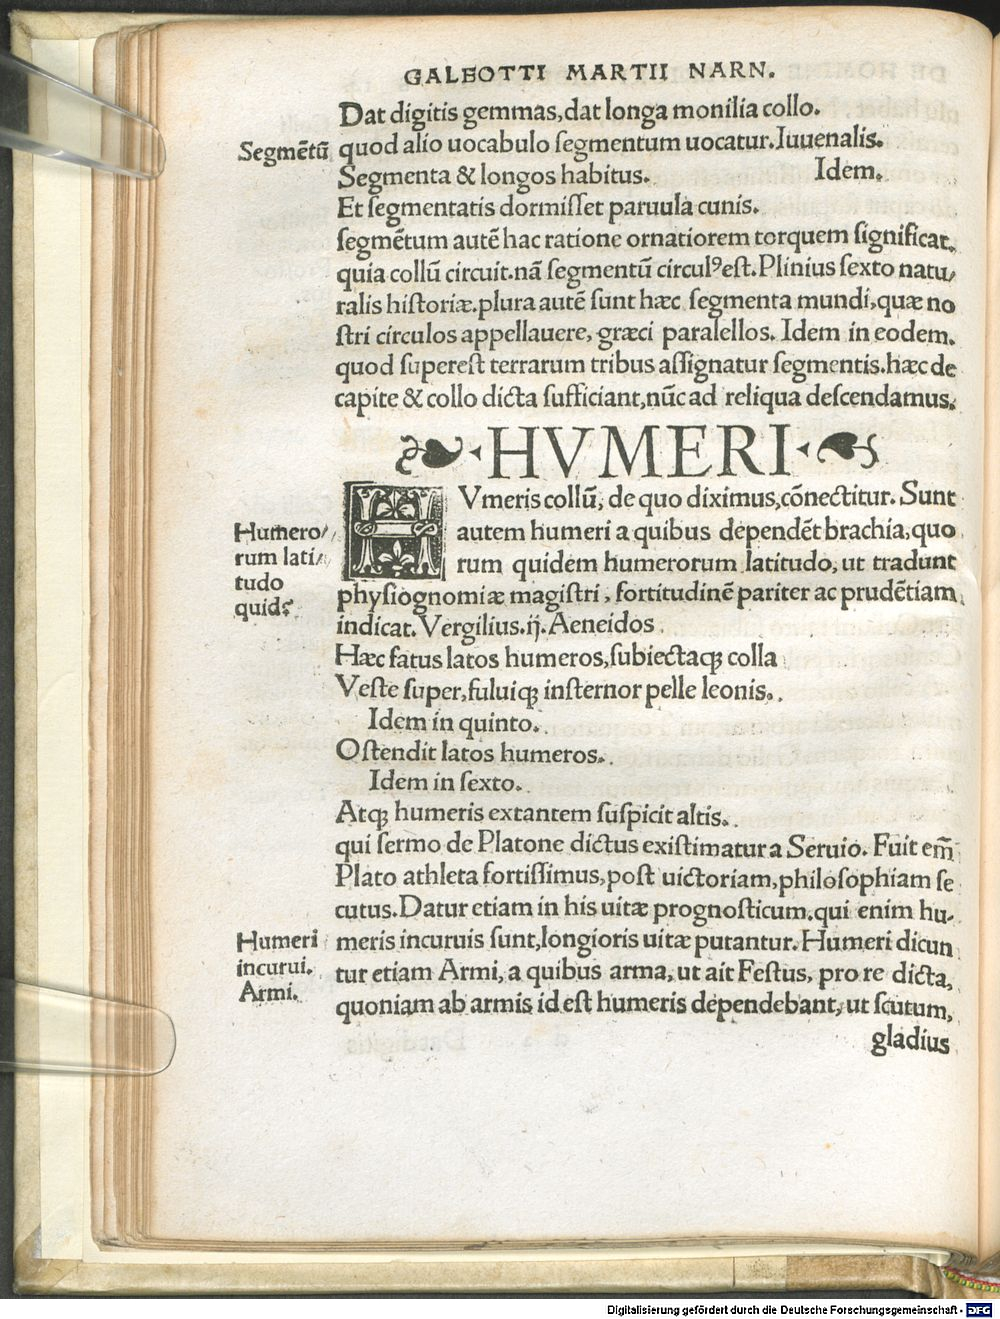 GALEOTTI MARTII NARN.
Dat digitis gemmas,dat longa monilia collo.
Segmẽtũ
quod alio uocabulo ſegmentum uocatur.Iuuenalis.
Segmenta & longos habitus. Idem.
Et ſegmentatis dormiſſet paruula cunis.
ſegmẽtum autẽ hac ratione ornatiorem torquem ſignificat.
quia collũ circuit.nã ſegmentũ circulꝰ eſt.Plinius ſexto natu/
ralis hiſtoriæ.plura autẽ ſunt hæc ſegmenta mundi,quæ no
ſtri circulos appellauere, græci paralellos. Idem in eodem.
quod ſupereſt terrarum tribus aſſignatur ſegmentis.hæc de
capite & collo dicta ſufficiant,nũc ad reliqua deſcendamus.
HVMERI
HVmeris collũ, de quo diximus,cõnectitur. Sunt
Humero/
rum lati/
tudo
quid?
autem humeri a quibus dependẽt brachia,quo
rum quidem humerorum latitudo, ut tradunt
phyſiognomiæ magiſtri, fortitudinẽ pariter ac prudẽtiam
indicat. Vergilius.ij. Aeneidos
Hæc fatus latos humeros,ſubiectaqꝫ colla
Veſte ſuper,fuluiqꝫ inſternor pelle leonis.
Idem in quinto.
Oſtendit latos humeros.
Idem in ſexto.
Atqꝫ humeris extantem ſuſpicit altis.
qui ſermo de Platone dictus exiſtimatur a Seruio. Fuit em̃
Plato athleta fortiſſimus,poſt uictoriam,philoſophiam ſe
cutus.Datur etiam in his uitæ prognoſticum.qui enim hu-
Humeri
incurui.
Armi.
meris incuruis ſunt,longioris uitæ putantur. Humeri dicun
tur etiam Armi, a quibus arma, ut ait Feſtus, pro re dicta,
quoniam ab armis id eſt humeris dependebant, ut ſcutum,
gladius
Digitalisierung gefördert durch die Deutsche Forschungsgemeinschaft - DFG